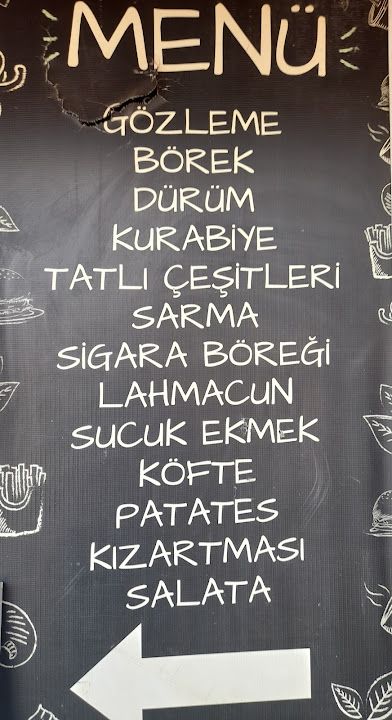 MENÜ
GÖZLEME
BÖREK
DÜRÜM
KURABİYE
TATLI ÇEŞİTLERİ
SARMA
SİGARA BÖREĞİ
LAHMACUN
SUCUK EKMEK
KÖFTE
PATATES
KIZARTMASI
SALATA